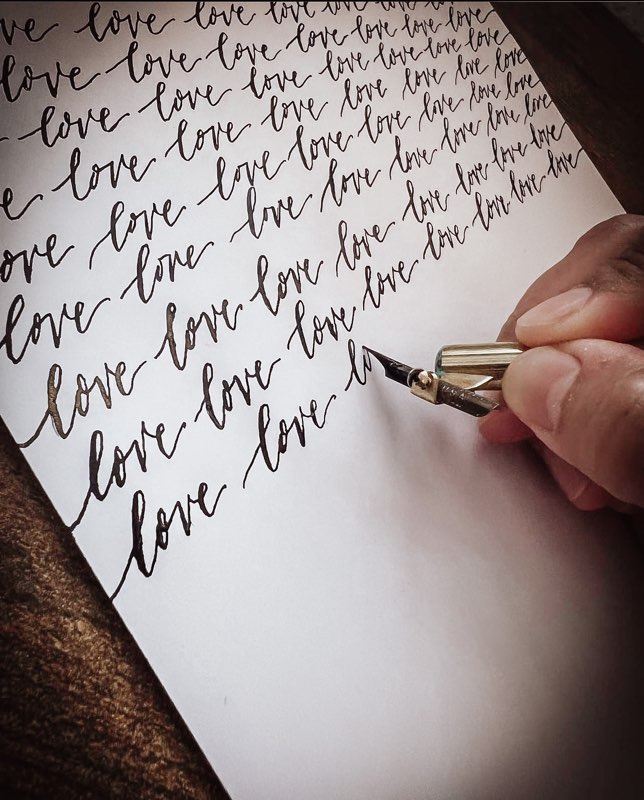 ve love love love
love love love love love love love
love love love love love love love
e love love love love love love love
ove love love love love love love love
love love love love love love love love
love love love love love love love love
love love love love love love love love
love love lo